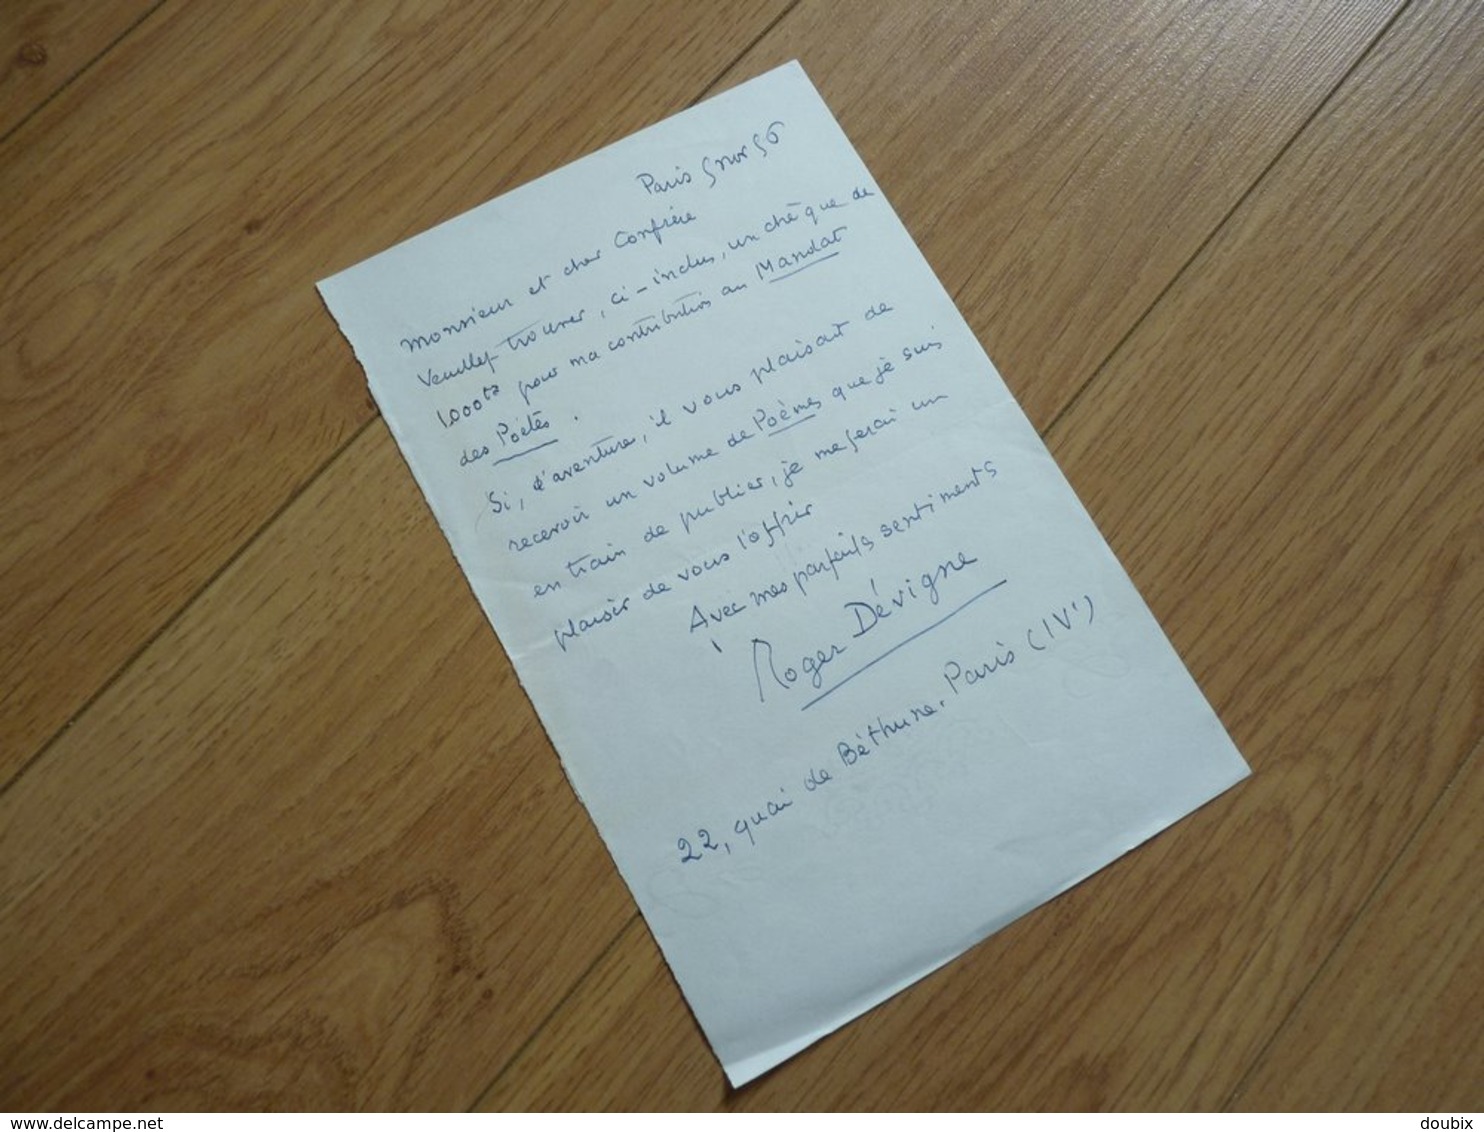 Paris 5 nov 56
Monsieur et cher Confrère
Veuillez trouver, ci-inclus, un chèque de
1.000 frs pour ma contribution au Mandat
des Poètes.
Si, d'aventure, il vous plaisait de
recevoir un volume de Poèmes que je suis
en train de publier, je me ferai un
plaisir de vous l'offrir
Avec mes parfaits sentiments
Roger Dévigne
22, quai de Béthune. Paris (IV')
doubix